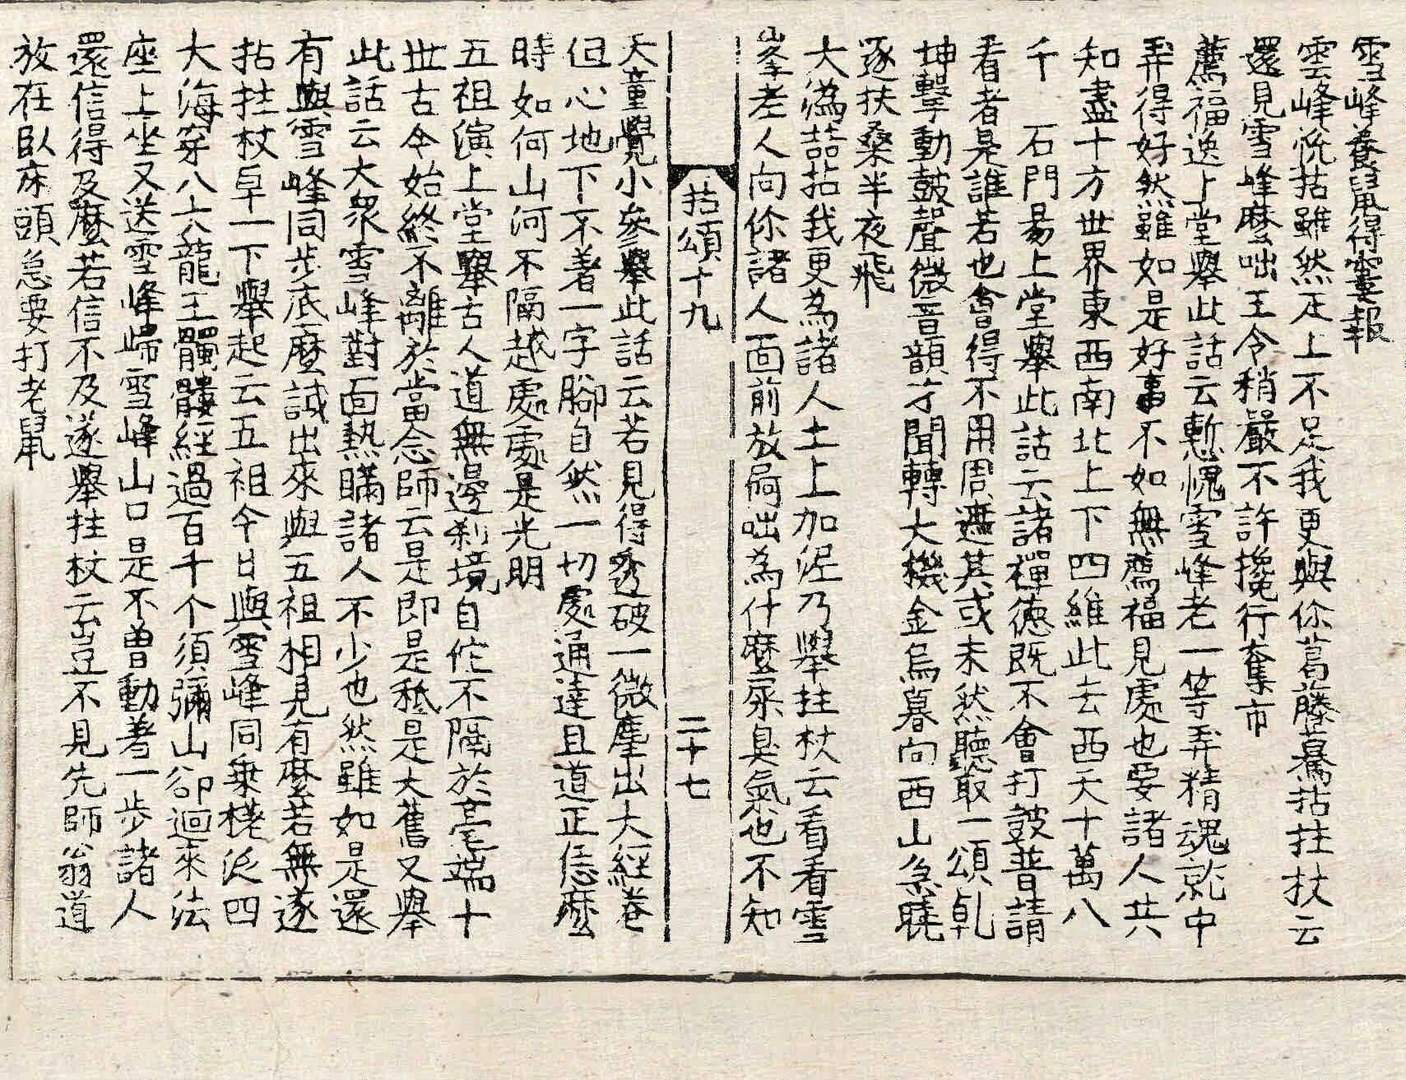 雪峰養鼠得靈報
雲峰悅拈雖然疋上不足我更與你葛藤驀拈拄杖云
還見雪峰麼咄王令稍嚴不許攙行奪市
薦福逸上堂舉此話云慙愧雪峰老一等弄精魂就中
弄得好然雖如是好事不如無薦福見處也要諸人共
知盡十方世界東西南北上下四維此去西天十萬八
千　石門易上堂舉此話云諸禪德既不會打皷普請
看者是誰若也會得不用周遮其或未然聽取一頌乹
坤擊動皷聲微音韻才聞轉大機金烏暮向西山急曉
逐扶桑半夜飛
大溈喆拈我更為諸人土上加泥乃舉拄杖云看看雪
峯老人向你諸人面前放屙咄為什麼屎臭氣也不知
拈頌十九　二十七
天童覺小參舉此話云若見得透破一微塵出大經卷
但心地下不著一字腳自然一切處通達且道正恁麼
時如何山河不隔越處處是光明
五祖演上堂舉古人道無邊刹境自佗不隔於毫端十
世古今始終不離於當念師云是即是秪是大舊又舉
此話云大眾雪峰對面熱瞞諸人不少也然雖如是還
有與雪峰同步底麼試出來與五祖相見有麼若無遂
拈拄杖卓一下舉起云五祖今日與雪峰同乗槎泛四
大海穿八大龍王髑髏經過百千个須彌山卻迴來法
座上坐又送雪峰歸雪峰山口是不曾動著一步諸人
還信得及麼若信不及遂舉拄杖云豈不見先師翁道
放在臥床頭急要打老鼠